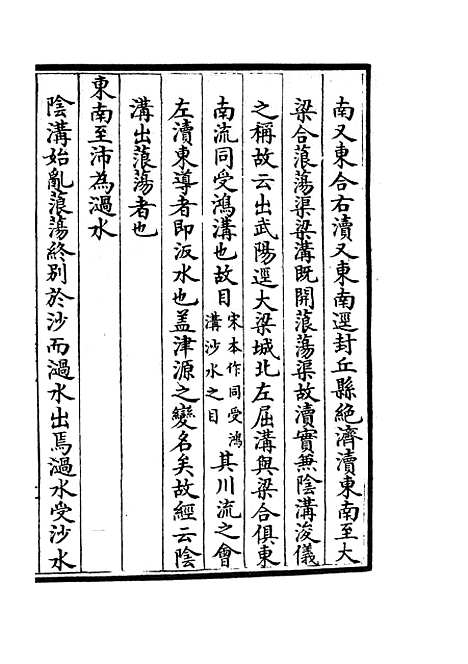 南又東合右瀆又東南逕封丘縣絶濟瀆東南至大
梁合蒗蕩渠梁溝既開蒗蕩渠故瀆實兼陰溝浚儀
之稱故云出武陽逕大梁城北左屈溝與梁合俱東
南流同受鴻溝也故目宋本作同受鴻溝沙水之目其川流之會
左瀆東導者即汳水也盖津源之變名矣故經云陰
溝出蒗蕩者也
東南至沛為濄水
陰溝始亂蒗蕩終别於沙而濄水出焉濄水受沙水